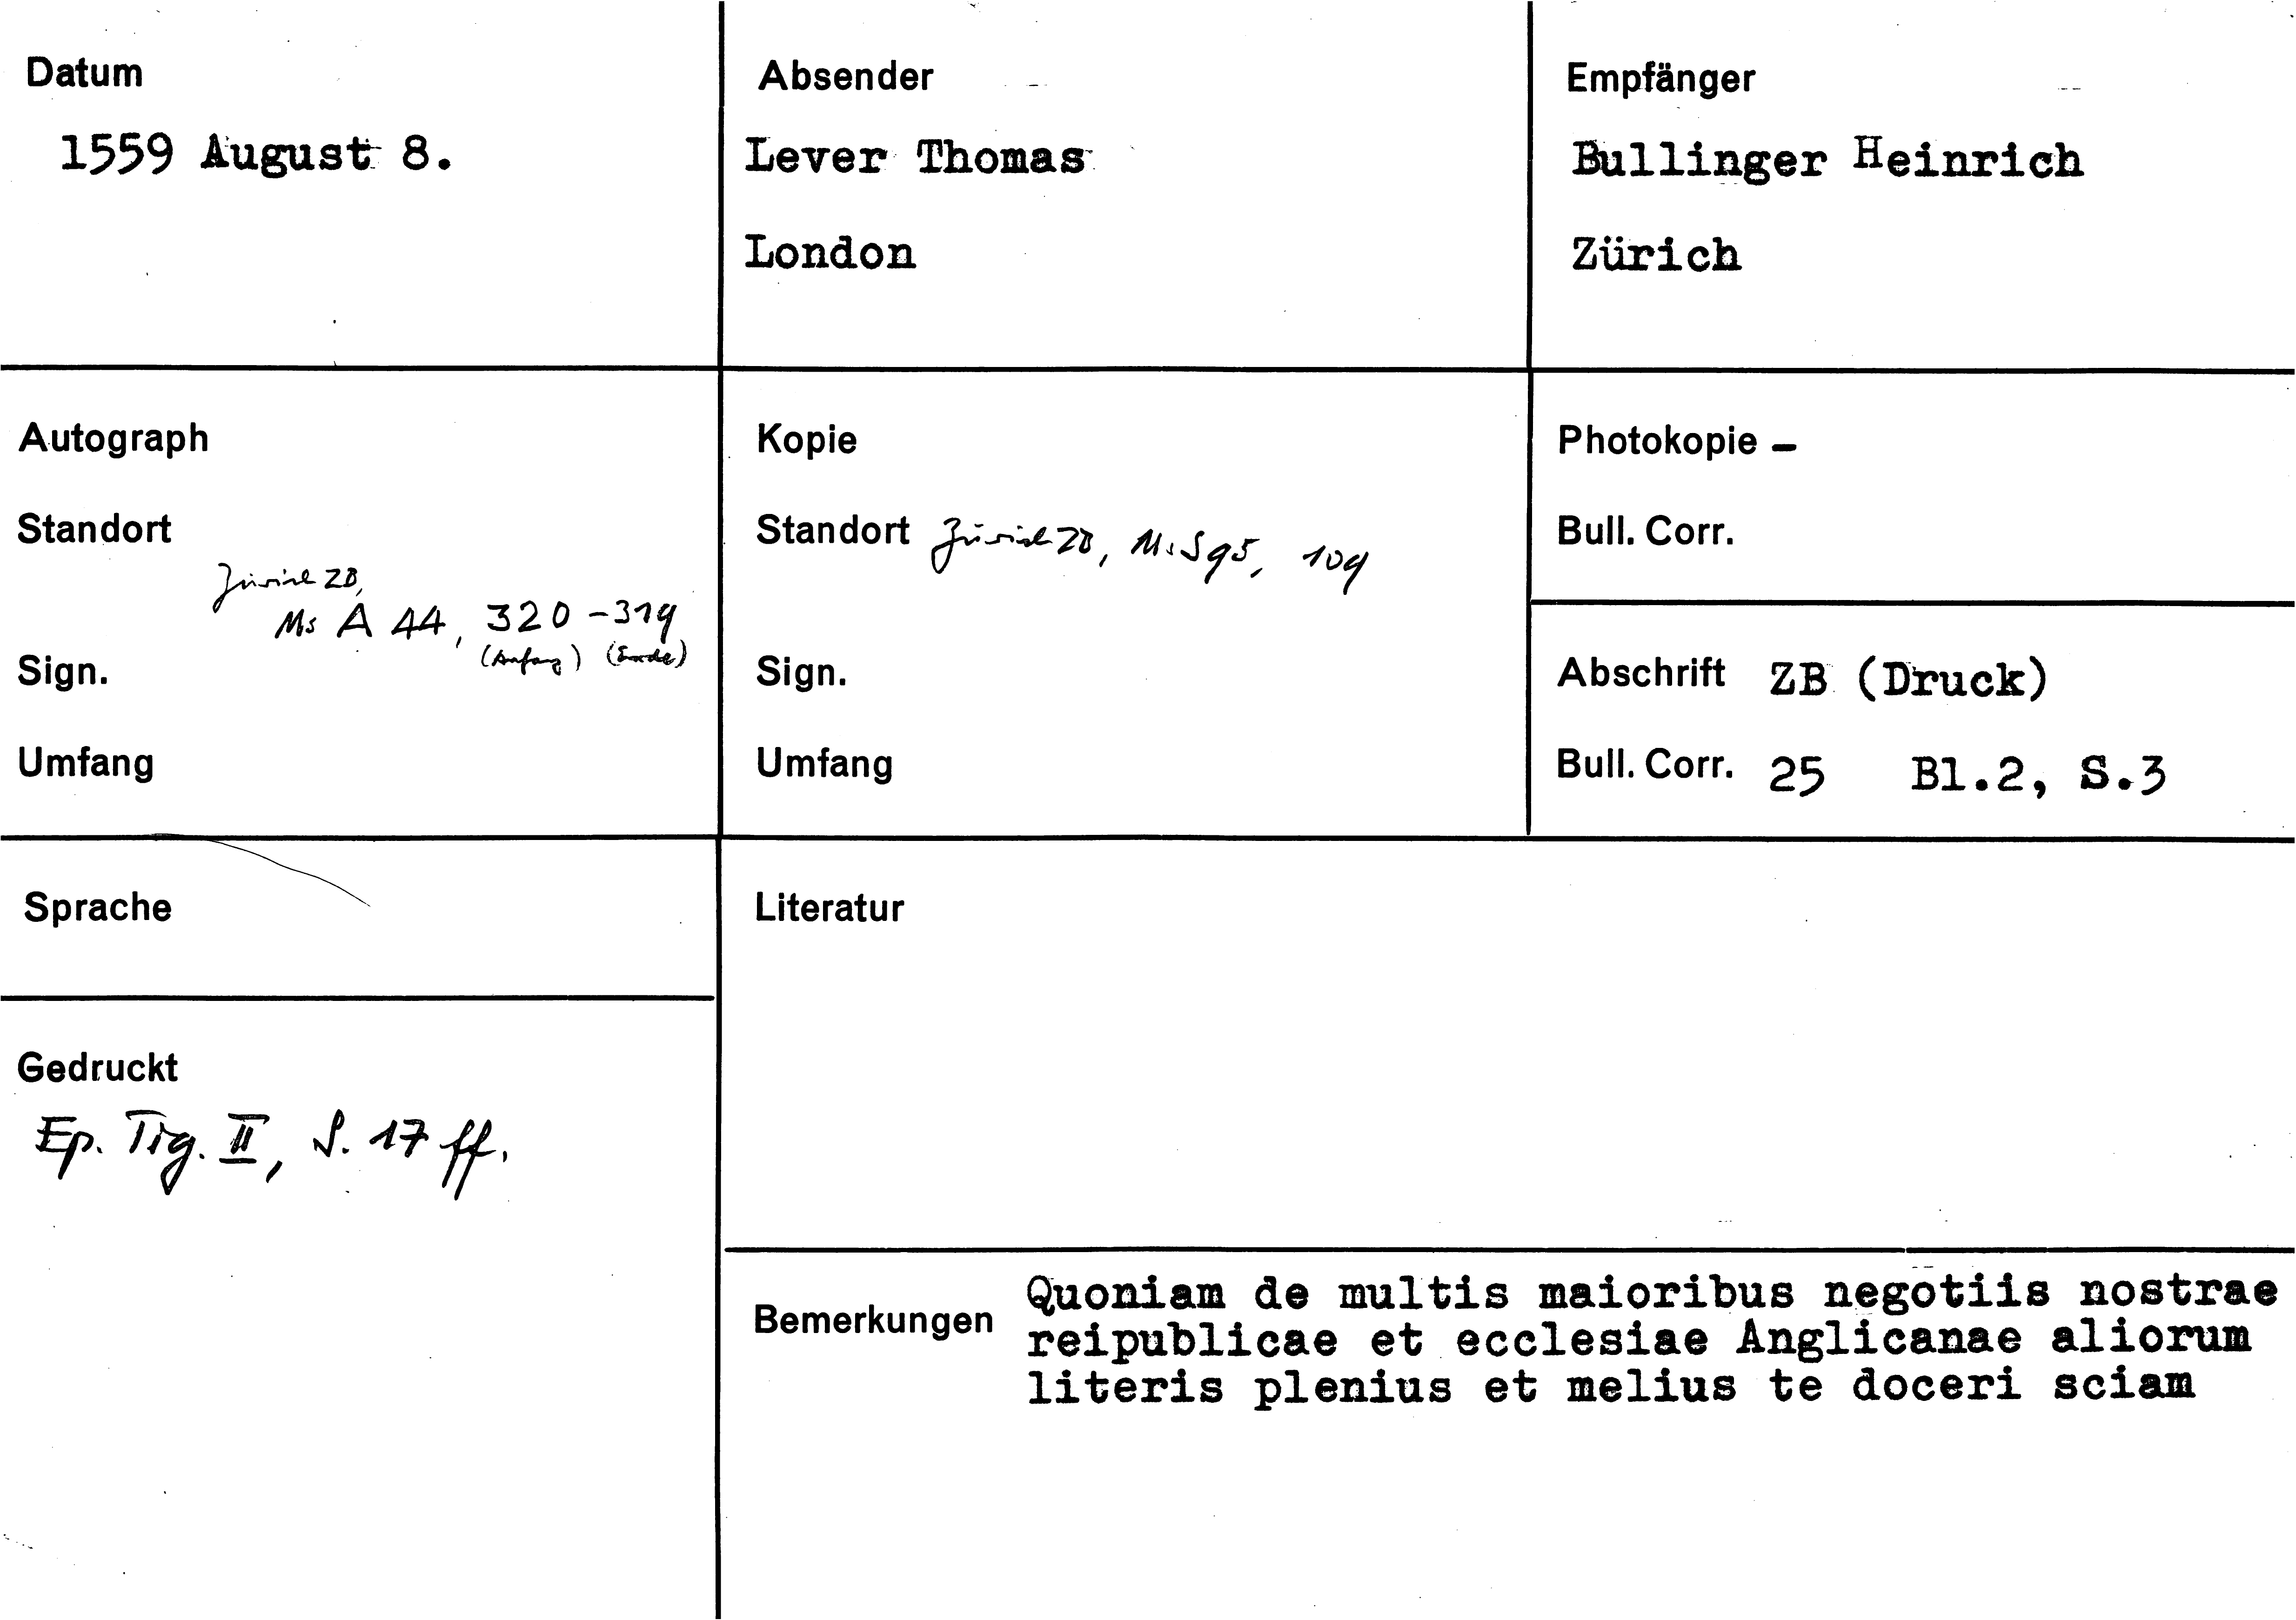 Datum
1559 August 8.
Absender
Lever Thomas
London
Empfänger
Bullinger Heinrich
Zürich
Autograph
Standort
Zürich ZB,
Ms A 44, 320-319
(Anfang) (Ende)
Sign.
Umfang
Kopie
Standort Zürich ZB, Ms S 95, 109
Sign.
Umfang
Photokopie –
Bull. Corr.
Abschrift ZB (Druck)
Bull. Corr. 25 Bl.2, S.3
Sprache
Gedruckt
Ep. Tig. II, S. 17 ff.
Literatur
Bemerkungen
Quoniam de multis maioribus negotiis nostrae
reipublicae et ecclesiae Anglicanae aliorum
literis plenius et melius te doceri sciam